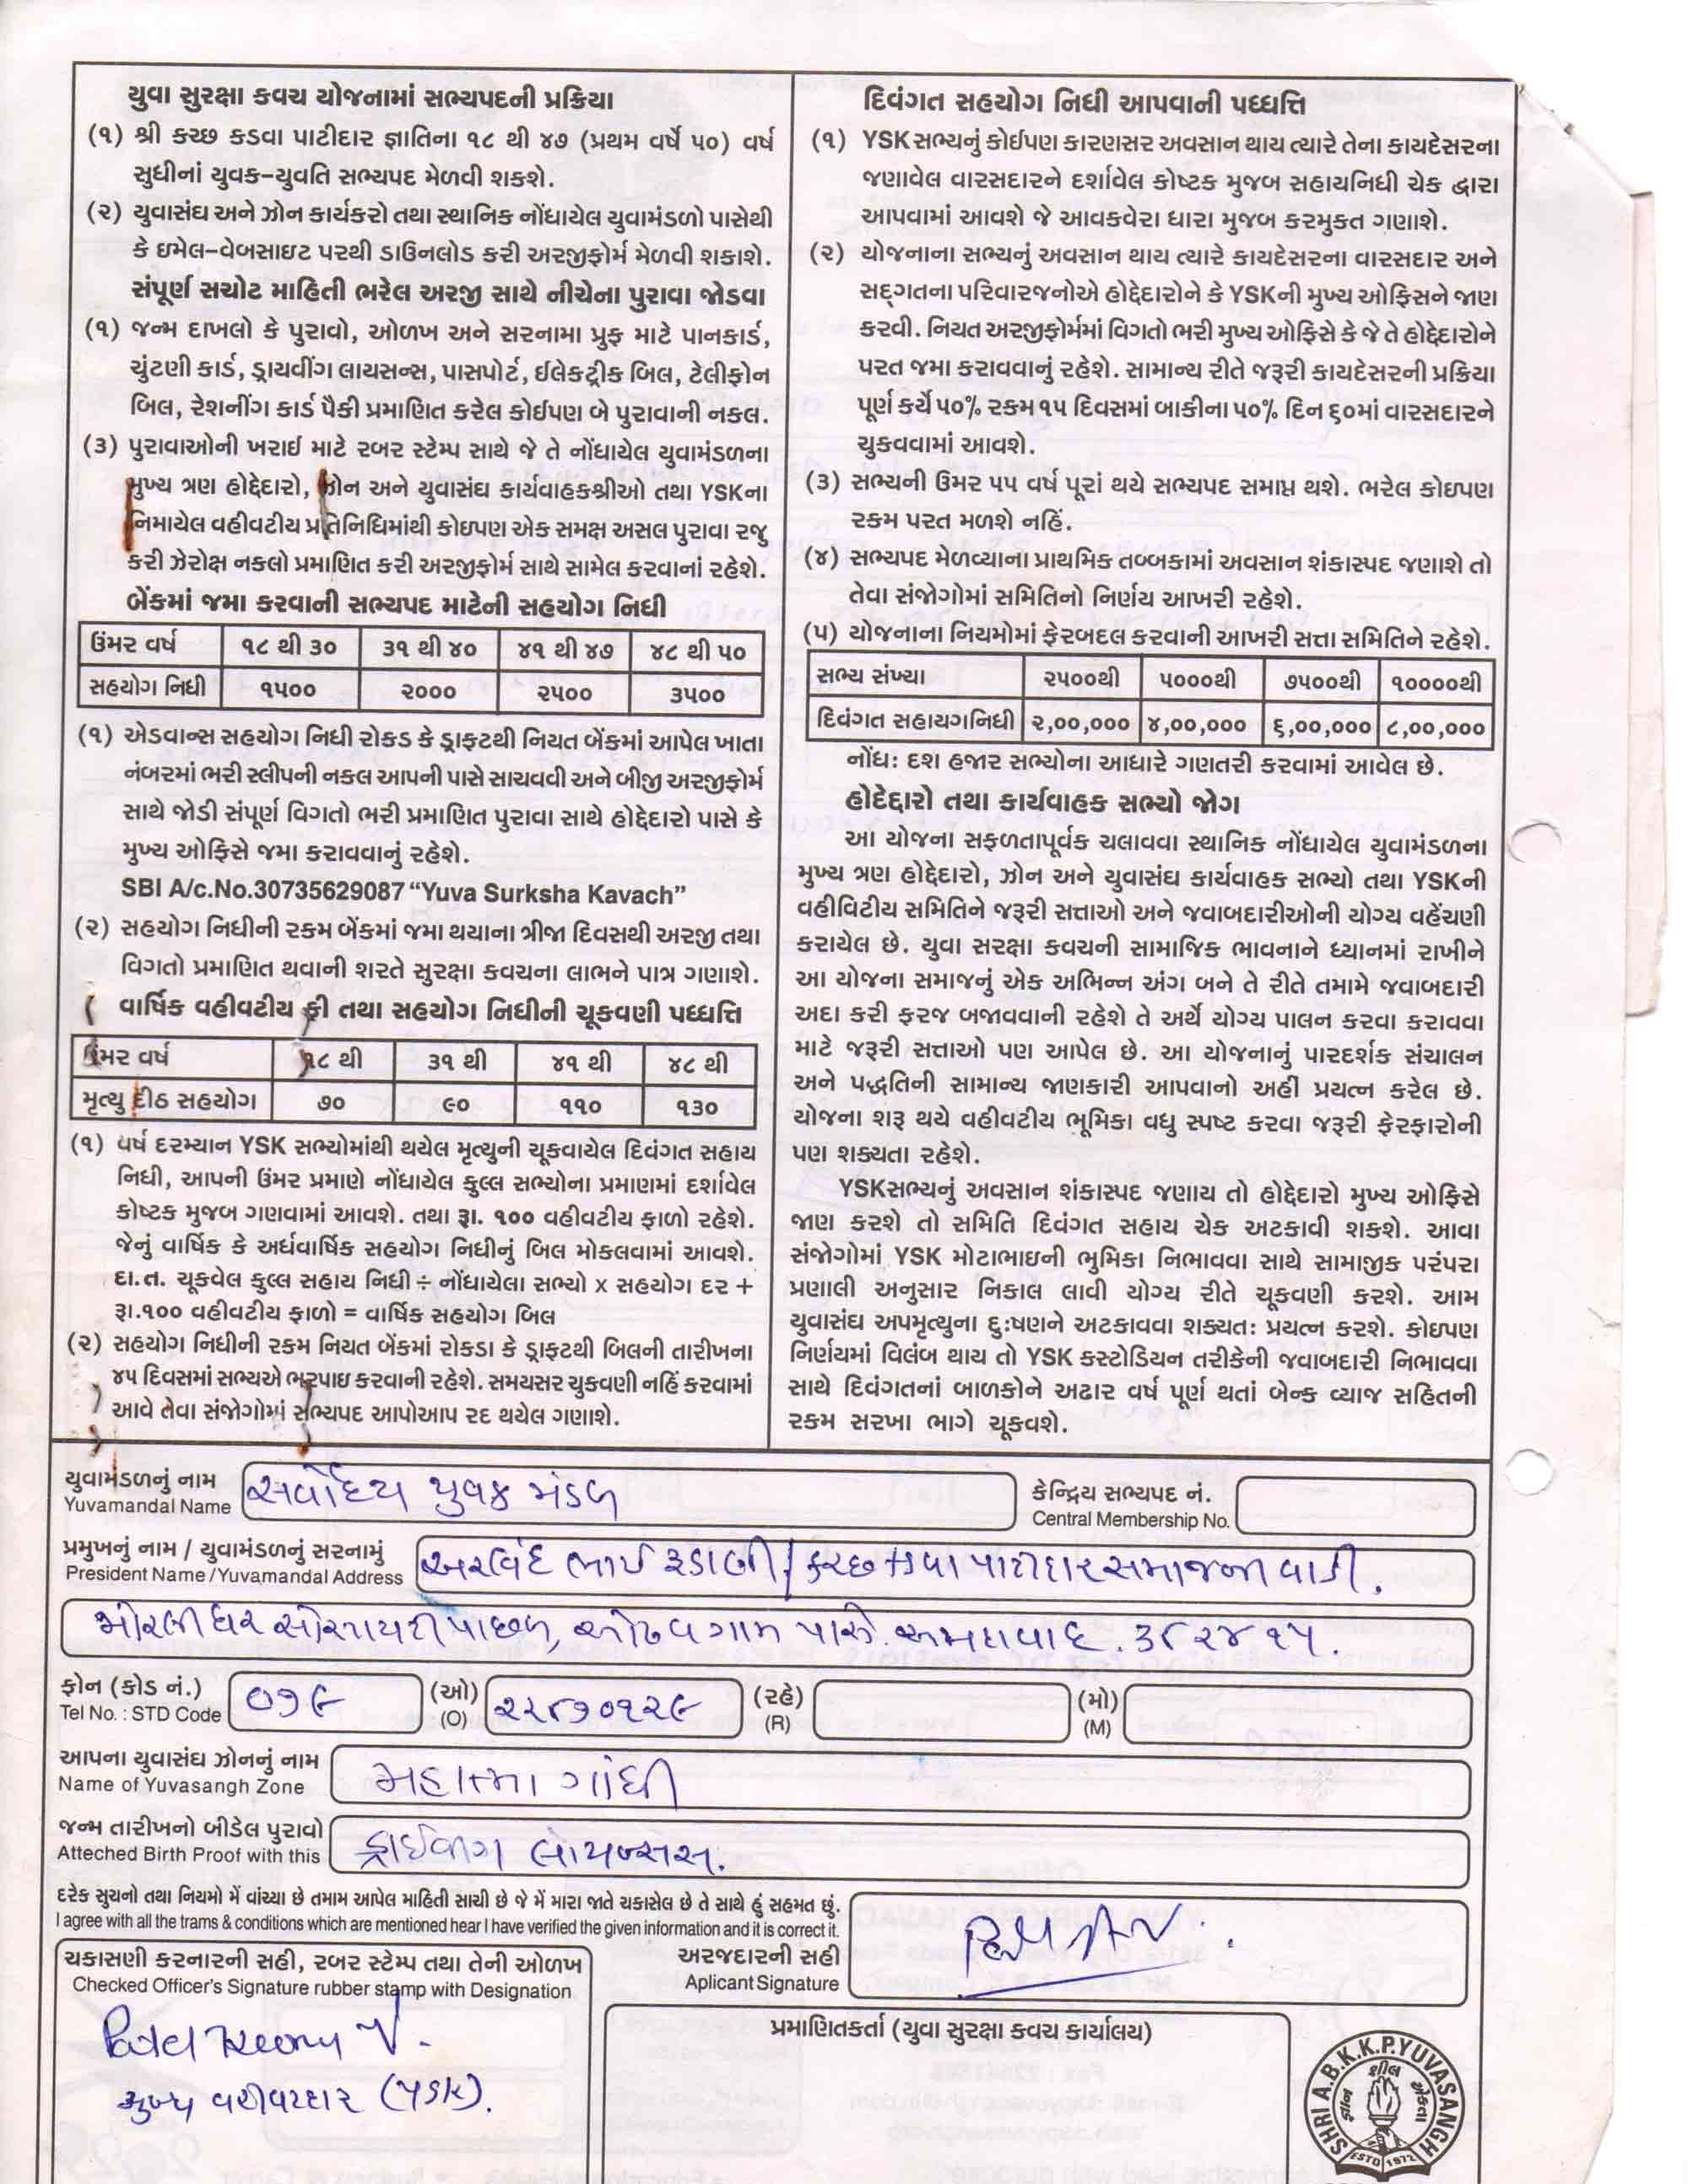 યુવા સુરક્ષા કવચ યોજનામાં સભ્યપદની પ્રક્રિયા
(૧) શ્રી કચ્છ કડવા પાટીદાર જ્ઞાતિના ૧૮ થી ૪૭ (પ્રથમ વર્ષે ૫૦) વર્ષ
સુધીનાં યુવક-યુવતિ સભ્યપદ મેળવી શકશે.
(૨) યુવાસંઘ અને ઝોન કાર્યકરો તથા સ્થાનિક નોંધાયેલ યુવામંડળો પાસેથી
કે ઇમેલ-વેબસાઇટ પરથી ડાઉનલોડ કરી અરજીફોર્મ મેળવી શકાશે.
સંપૂર્ણ સચોટ માહિતી ભરેલ અરજી સાથે નીચેના પુરાવા જોડવા
(૧) જન્મ દાખલો કે પુરાવો, ઓળખ અને સરનામા પ્રુફ માટે પાનકાર્ડ,
ચુંટણી કાર્ડ, ડ્રાયવીંગ લાયસન્સ, પાસપોર્ટ, ઈલેકટ્રીક બિલ, ટેલીફોન
બિલ, રેશનીંગ કાર્ડ પૈકી પ્રમાણિત કરેલ કોઈપણ બે પુરાવાની નકલ.
(૩) પુરાવાઓની ખરાઈ માટે રબર સ્ટેમ્પ સાથે જે તે નોંધાયેલ યુવામંડળના
મુખ્ય ત્રણ હોદ્દેદારો, ઝોન અને યુવાસંઘ કાર્યવાહકશ્રીઓ તથા YSKના
નિમાયેલ વહીવટીય પ્રતિનિધિમાંથી કોઇપણ એક સમક્ષ અસલ પુરાવા રજુ
કરી ઝેરોક્ષ નકલો પ્રમાણિત કરી અરજીફોર્મ સાથે સામેલ કરવાનાં રહેશે.
બેંકમાં જમા કરવાની સભ્યપદ માટેની સહયોગ નિધી
ઉંમર વર્ષ ૧૮ થી ૩૦ ૩૧ થી ૪૦ ૪૧ થી ૪૭ ૪૮ થી ૫૦
સહયોગ નિધી ૧૫૦૦ ૨૦૦૦ ૨૫૦૦ ૩૫૦૦
(૧) એડવાન્સ સહયોગ નિધી રોકડ કે ડ્રાફટથી નિયત બેંકમાં આપેલ ખાતા
નંબરમાં ભરી સ્લીપની નકલ આપની પાસે સાચવવી અને બીજી અરજીફોર્મ
સાથે જોડી સંપૂર્ણ વિગતો ભરી પ્રમાણિત પુરાવા સાથે હોદ્દેદારો પાસે કે
મુખ્ય ઓફિસે જમા કરાવવાનું રહેશે.
SBI A/c.No.30735629087 “Yuva Surksha Kavach”
(૨) સહયોગ નિધીની રકમ બેંકમાં જમા થયાના ત્રીજા દિવસથી અરજી તથા
વિગતો પ્રમાણિત થવાની શરતે સુરક્ષા કવચના લાભને પાત્ર ગણાશે.
વાર્ષિક વહીવટીય ફી તથા સહયોગ નિધીની ચૂકવણી પધ્ધત્તિ
ઉંમર વર્ષ ૧૮ થી ૩૧ થી ૪૧ થી ૪૮ થી
મૃત્યુ દીઠ સહયોગ ૭૦ ૯૦ ૧૧૦ ૧૩૦
(૧) વર્ષ દરમ્યાન YSK સભ્યોમાંથી થયેલ મૃત્યુની ચૂકવાયેલ દિવંગત સહાય
નિધી, આપની ઉંમર પ્રમાણે નોંધાયેલ કુલ્લ સભ્યોના પ્રમાણમાં દર્શાવેલ
કોષ્ટક મુજબ ગણવામાં આવશે. તથા રૂા. ૧૦૦ વહીવટીય ફાળો રહેશે.
જેનું વાર્ષિક કે અર્ધવાર્ષિક સહયોગ નિધીનું બિલ મોકલવામાં આવશે.
દા.ત. ચૂકવેલ કુલ્લ સહાય નિધી ÷ નોંધાયેલા સભ્યો x સહયોગ દર +
રૂા.૧૦૦ વહીવટીય ફાળો = વાર્ષિક સહયોગ બિલ
(૨) સહયોગ નિધીની રકમ નિયત બેંકમાં રોકડા કે ડ્રાફટથી બિલની તારીખના
૪૫ દિવસમાં સભ્યએ ભરપાઇ કરવાની રહેશે. સમયસર ચુકવણી નહિં કરવામાં
આવે તેવા સંજોગોમાં સભ્યપદ આપોઆપ રદ થયેલ ગણાશે.
દિવંગત સહયોગ નિધી આપવાની પધ્ધત્તિ
(૧) YSKસભ્યનું કોઈપણ કારણસર અવસાન થાય ત્યારે તેના કાયદેસરના
જણાવેલ વારસદારને દર્શાવેલ કોષ્ટક મુજબ સહાયનિધી ચેક દ્વારા
આપવામાં આવશે જે આવકવેરા ધારા મુજબ કરમુકત ગણાશે.
(૨) યોજનાના સભ્યનું અવસાન થાય ત્યારે કાયદેસરના વારસદાર અને
સદ્‌ગતના પરિવારજનોએ હોદ્દેદારોને કે YSKની મુખ્ય ઓફિસને જાણ
કરવી. નિયત અરજીફોર્મમાં વિગતો ભરી મુખ્ય ઓફિસે કે જે તે હોદ્દેદારોને
પરત જમા કરાવવાનું રહેશે. સામાન્ય રીતે જરૂરી કાયદેસરની પ્રક્રિયા
પૂર્ણ કર્યે ૫૦% રકમ ૧૫ દિવસમાં બાકીના ૫૦% દિન ૬૦માં વારસદારને
ચુકવવામાં આવશે.
(૩) સભ્યની ઉંમર ૫૫ વર્ષ પૂરાં થયે સભ્યપદ સમાપ્ત થશે. ભરેલ કોઇપણ
રકમ પરત મળશે નહિં.
(૪) સભ્યપદ મેળવ્યાના પ્રાથમિક તબ્બકામાં અવસાન શંકાસ્પદ જણાશે તો
તેવા સંજોગોમાં સમિતિનો નિર્ણય આખરી રહેશે.
(૫) યોજનાના નિયમોમાં ફેરબદલ કરવાની આખરી સત્તા સમિતિને રહેશે.
સભ્ય સંખ્યા ૨૫૦૦થી ૫૦૦૦થી ૭૫૦૦થી ૧૦૦૦૦થી
દિવંગત સહાયગનિધી ૨,૦૦,૦૦૦ ૪,૦૦,૦૦૦ ૬,૦૦,૦૦૦ ૮,૦૦,૦૦૦
નોંધઃ દશ હજાર સભ્યોના આધારે ગણતરી કરવામાં આવેલ છે.
હોદેદ્દારો તથા કાર્યવાહક સભ્યો જોગ
આ યોજના સફળતાપૂર્વક ચલાવવા સ્થાનિક નોંધાયેલ યુવામંડળના
મુખ્ય ત્રણ હોદ્દેદારો, ઝોન અને યુવાસંઘ કાર્યવાહક સભ્યો તથા YSKની
વહીવિટીય સમિતિને જરૂરી સત્તાઓ અને જવાબદારીઓની યોગ્ય વહેંચણી
કરાયેલ છે. યુવા સરક્ષા કવચની સામાજિક ભાવનાને ધ્યાનમાં રાખીને
આ યોજના સમાજનું એક અભિન્ન અંગ બને તે રીતે તમામે જવાબદારી
અદા કરી ફરજ બજાવવાની રહેશે તે અર્થે યોગ્ય પાલન કરવા કરાવવા
માટે જરૂરી સત્તાઓ પણ આપેલ છે. આ યોજનાનું પારદર્શક સંચાલન
અને પદ્ધતિની સામાન્ય જાણકારી આપવાનો અહીં પ્રયત્ન કરેલ છે.
યોજના શરૂ થયે વહીવટીય ભૂમિકા વધુ સ્પષ્ટ કરવા જરૂરી ફેરફારોની
પણ શક્યતા રહેશે.
YSKસભ્યનું અવસાન શંકાસ્પદ જણાય તો હોદ્દેદારો મુખ્ય ઓફિસે
જાણ કરશે તો સમિતિ દિવંગત સહાય ચેક અટકાવી શકશે. આવા
સંજોગોમાં YSK મોટાભાઇની ભુમિકા નિભાવવા સાથે સામાજીક પરંપરા
પ્રણાલી અનુસાર નિકાલ લાવી યોગ્ય રીતે ચૂકવણી કરશે. આમ
યુવાસંઘ અપમૃત્યુના દુઃષણને અટકાવવા શક્યતઃ પ્રયત્ન કરશે. કોઇપણ
નિર્ણયમાં વિલંબ થાય તો YSK કસ્ટોડિયન તરીકેની જવાબદારી નિભાવવા
સાથે દિવંગતનાં બાળકોને અઢાર વર્ષ પૂર્ણ થતાં બેન્ક વ્યાજ સહિતની
રકમ સરખા ભાગે ચૂકવશે.
યુવામંડળનું નામ સર્વોદય યુવક મંડળ કેન્દ્રિય સભ્યપદ નં.
Yuvamandal Name Central Membership No.
પ્રમુખનું નામ / યુવામંડળનું સરનામું અરવિંદ ભાઈ રૂડાણી / કચ્છ કડવા પાટીદાર સમાજની વાડી.
President Name/Yuvamandal Address
મોરલીધર સોસાયટી પાછળ, ઓઢવ ગામ પાસે. અમદાવાદ. ૩૮૨૪૧૫.
ફોન (કોડ નં.) ૦૭૯ (ઓ) ૨૨૮૭૦૧૨૯ (રહે) (મો)
Tel No. : STD Code (O) (R) (M)
આપના યુવાસંઘ ઝોનનું નામ મહાત્મા ગાંધી
Name of Yuvasangh Zone
જન્મ તારીખનો બીડેલ પુરાવો ડ્રાઈવીંગ લાયન્સસ.
Atteched Birth Proof with this
દરેક સુચનો તથા નિયમો મેં વાંચ્યા છે તમામ આપેલ માહિતી સાચી છે જે મેં મારા જાતે ચકાસેલ છે તે સાથે હું સહમત છું.
I agree with all the trams & conditions which are mentioned hear I have verified the given information and it is correct it.
ચકાસણી કરનારની સહી, રબર સ્ટેમ્પ તથા તેની ઓળખ અરજદારની સહી
Checked Officer's Signature rubber stamp with Designation Aplicant Signature
Patel V.
મુખ્ય વહીવટદાર (YSK).
પ્રમાણિતકર્તા (યુવા સુરક્ષા કવચ કાર્યાલય)
SHRI A.B.K.K.P. YUVASANGH
શીલ
જ્ઞાન એકતા
ESTD 1972